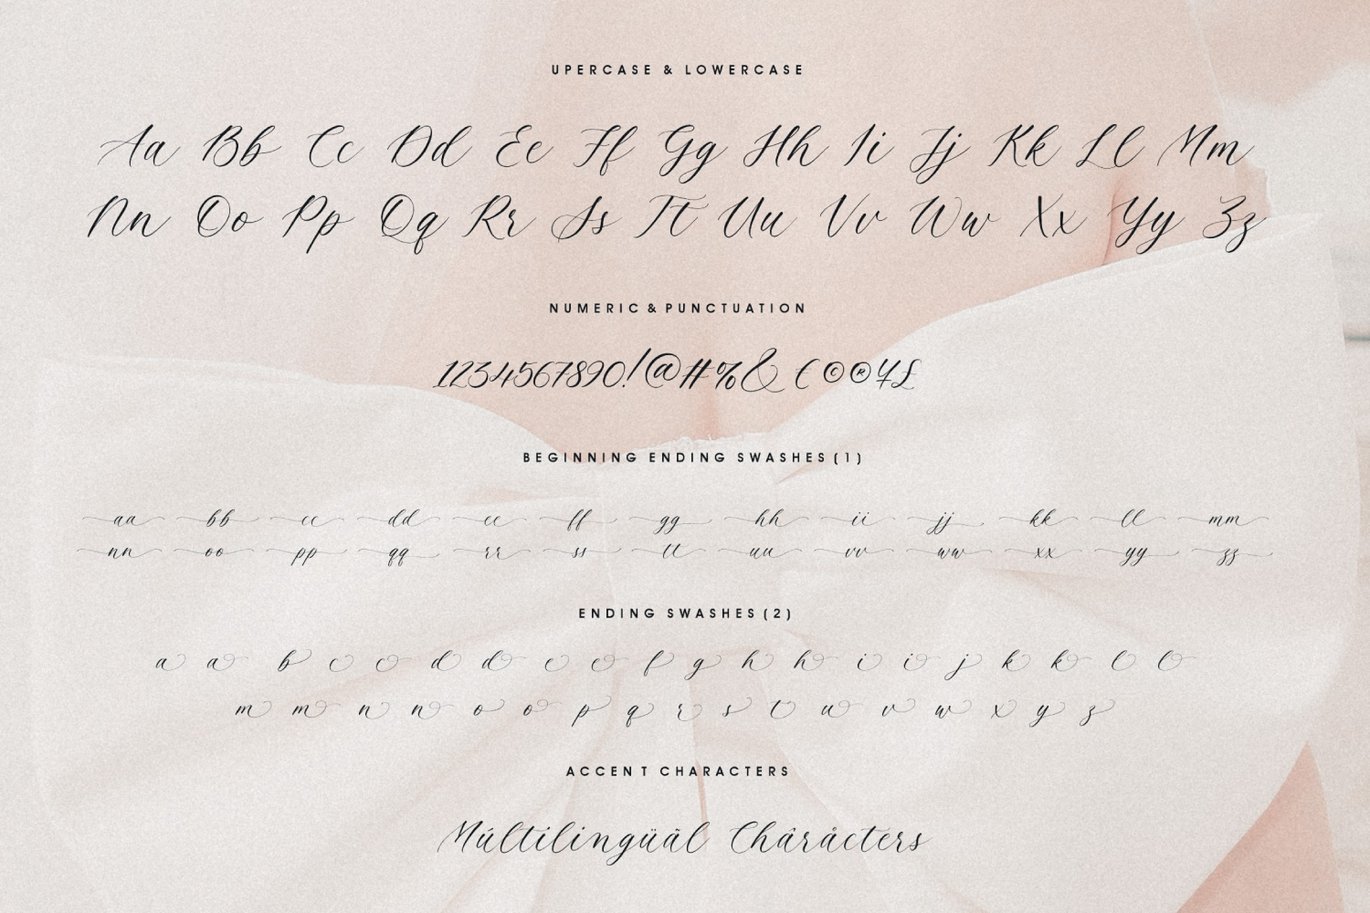 UPERCASE & LOWERCASE
Aa Bb Cc Dd Ee Ff Gg Hh Ii Jj Kk Ll Mm
Nn Oo Pp Qq Rr Ss Tt Uu Vv Ww Xx Yy Zz
NUMERIC & PUNCTUATION
1234567890!@#%& € ©®¥£
BEGINNING ENDING SWASHES (1)
aa bb cc dd ee ff gg hh ii jj kk ll mm
nn oo pp qq rr ss tt uu vv ww xx yy zz
ENDING SWASHES (2)
a a b c c d d e e f g h h i i j k k l l
m m n n o o p q r s t u v w x y z
ACCENT CHARACTERS
Múltilingüãl Chârâcters